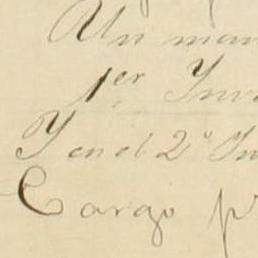 Un man
1er Inv
Y en el 2º In
Cargo p